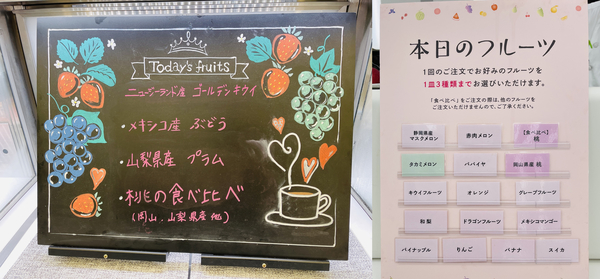 Today's fruits
ニュージーランド産 ゴールデンキウイ
・メキシコ産 ぶどう
・山梨県産 プラム
・桃の食べ比べ
(岡山、山梨県産 他)
本日のフルーツ
1回のご注文でお好みのフルーツを
1皿3種類までお選びいただけます。
「食べ比べ」をご注文の際は、他のフルーツを
ご注文いただけませんので、ご了承ください。
静岡県産
マスクメロン
赤肉メロン
【食べ比べ】
桃
タカミメロン
パパイヤ
岡山県産 桃
キウイフルーツ
オレンジ
グレープフルーツ
和梨
ドラゴンフルーツ
メキシコマンゴー
パイナップル
りんご
バナナ
スイカ